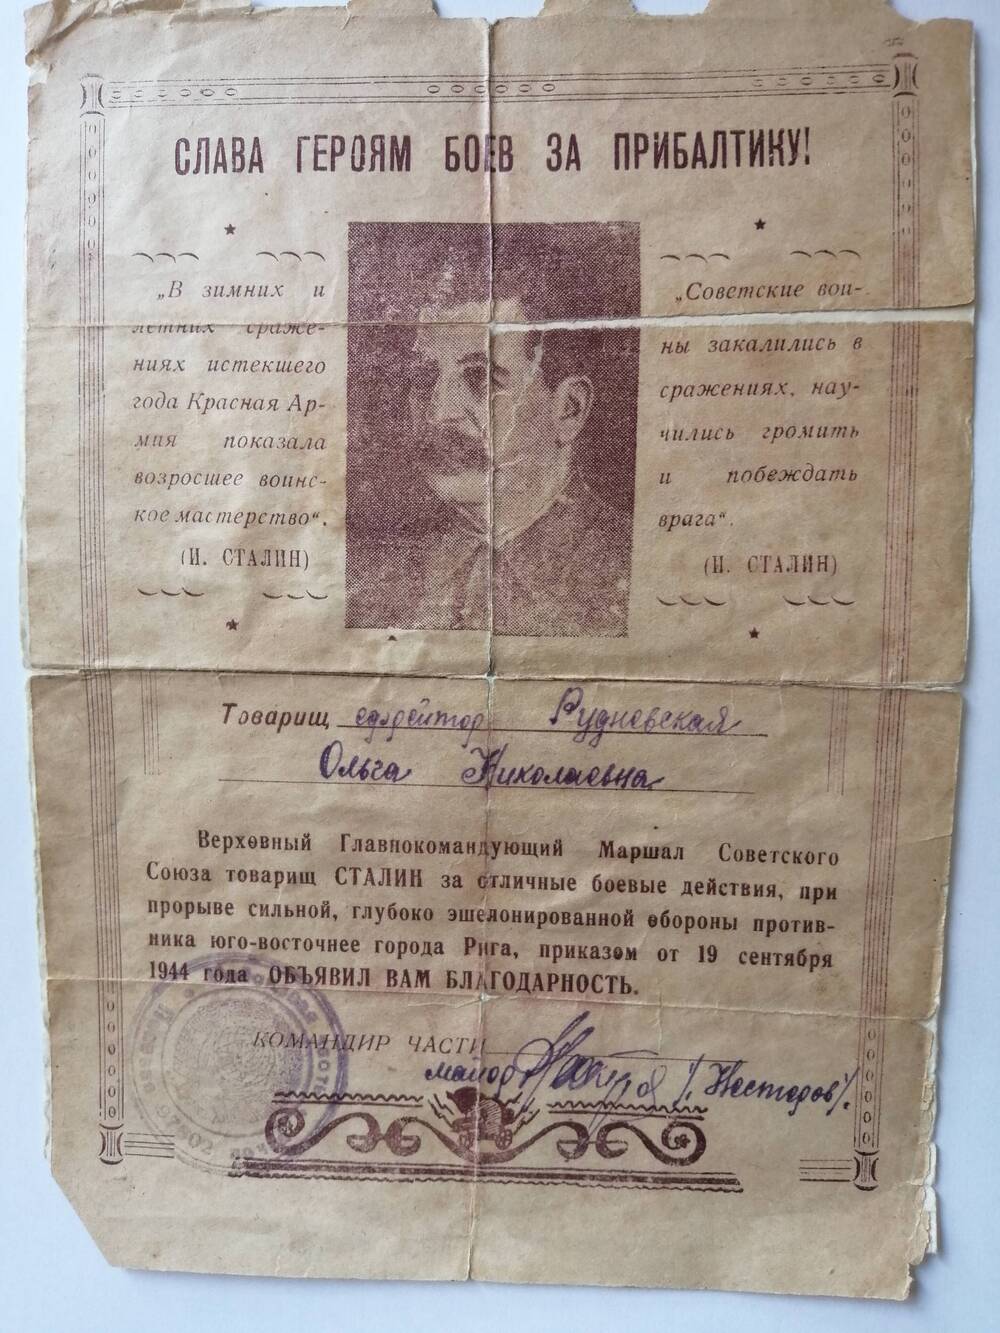 СЛАВА ГЕРОЯМ БОЕВ ЗА ПРИБАЛТИКУ!
„В зимних и
летних сраже-
ниях истекшего
года Красная Ар-
мия показала
возросшее воинс-
кое мастерство“.
(И. СТАЛИН)
„Советские вои-
ны закалились в
сражениях, нау-
чились громить
и побеждать
врага“.
(И. СТАЛИН)
Товарищ ефрейтор Рудневская
Ольга Николаевна
Верховный Главнокомандующий Маршал Советского
Союза товарищ СТАЛИН за отличные боевые действия, при
прорыве сильной, глубоко эшелонированной обороны против-
ника юго-восточнее города Рига, приказом от 19 сентября
1944 года ОБЪЯВИЛ ВАМ БЛАГОДАРНОСТЬ.
КОМАНДИР ЧАСТИ
майор /Нестеров/.
97502